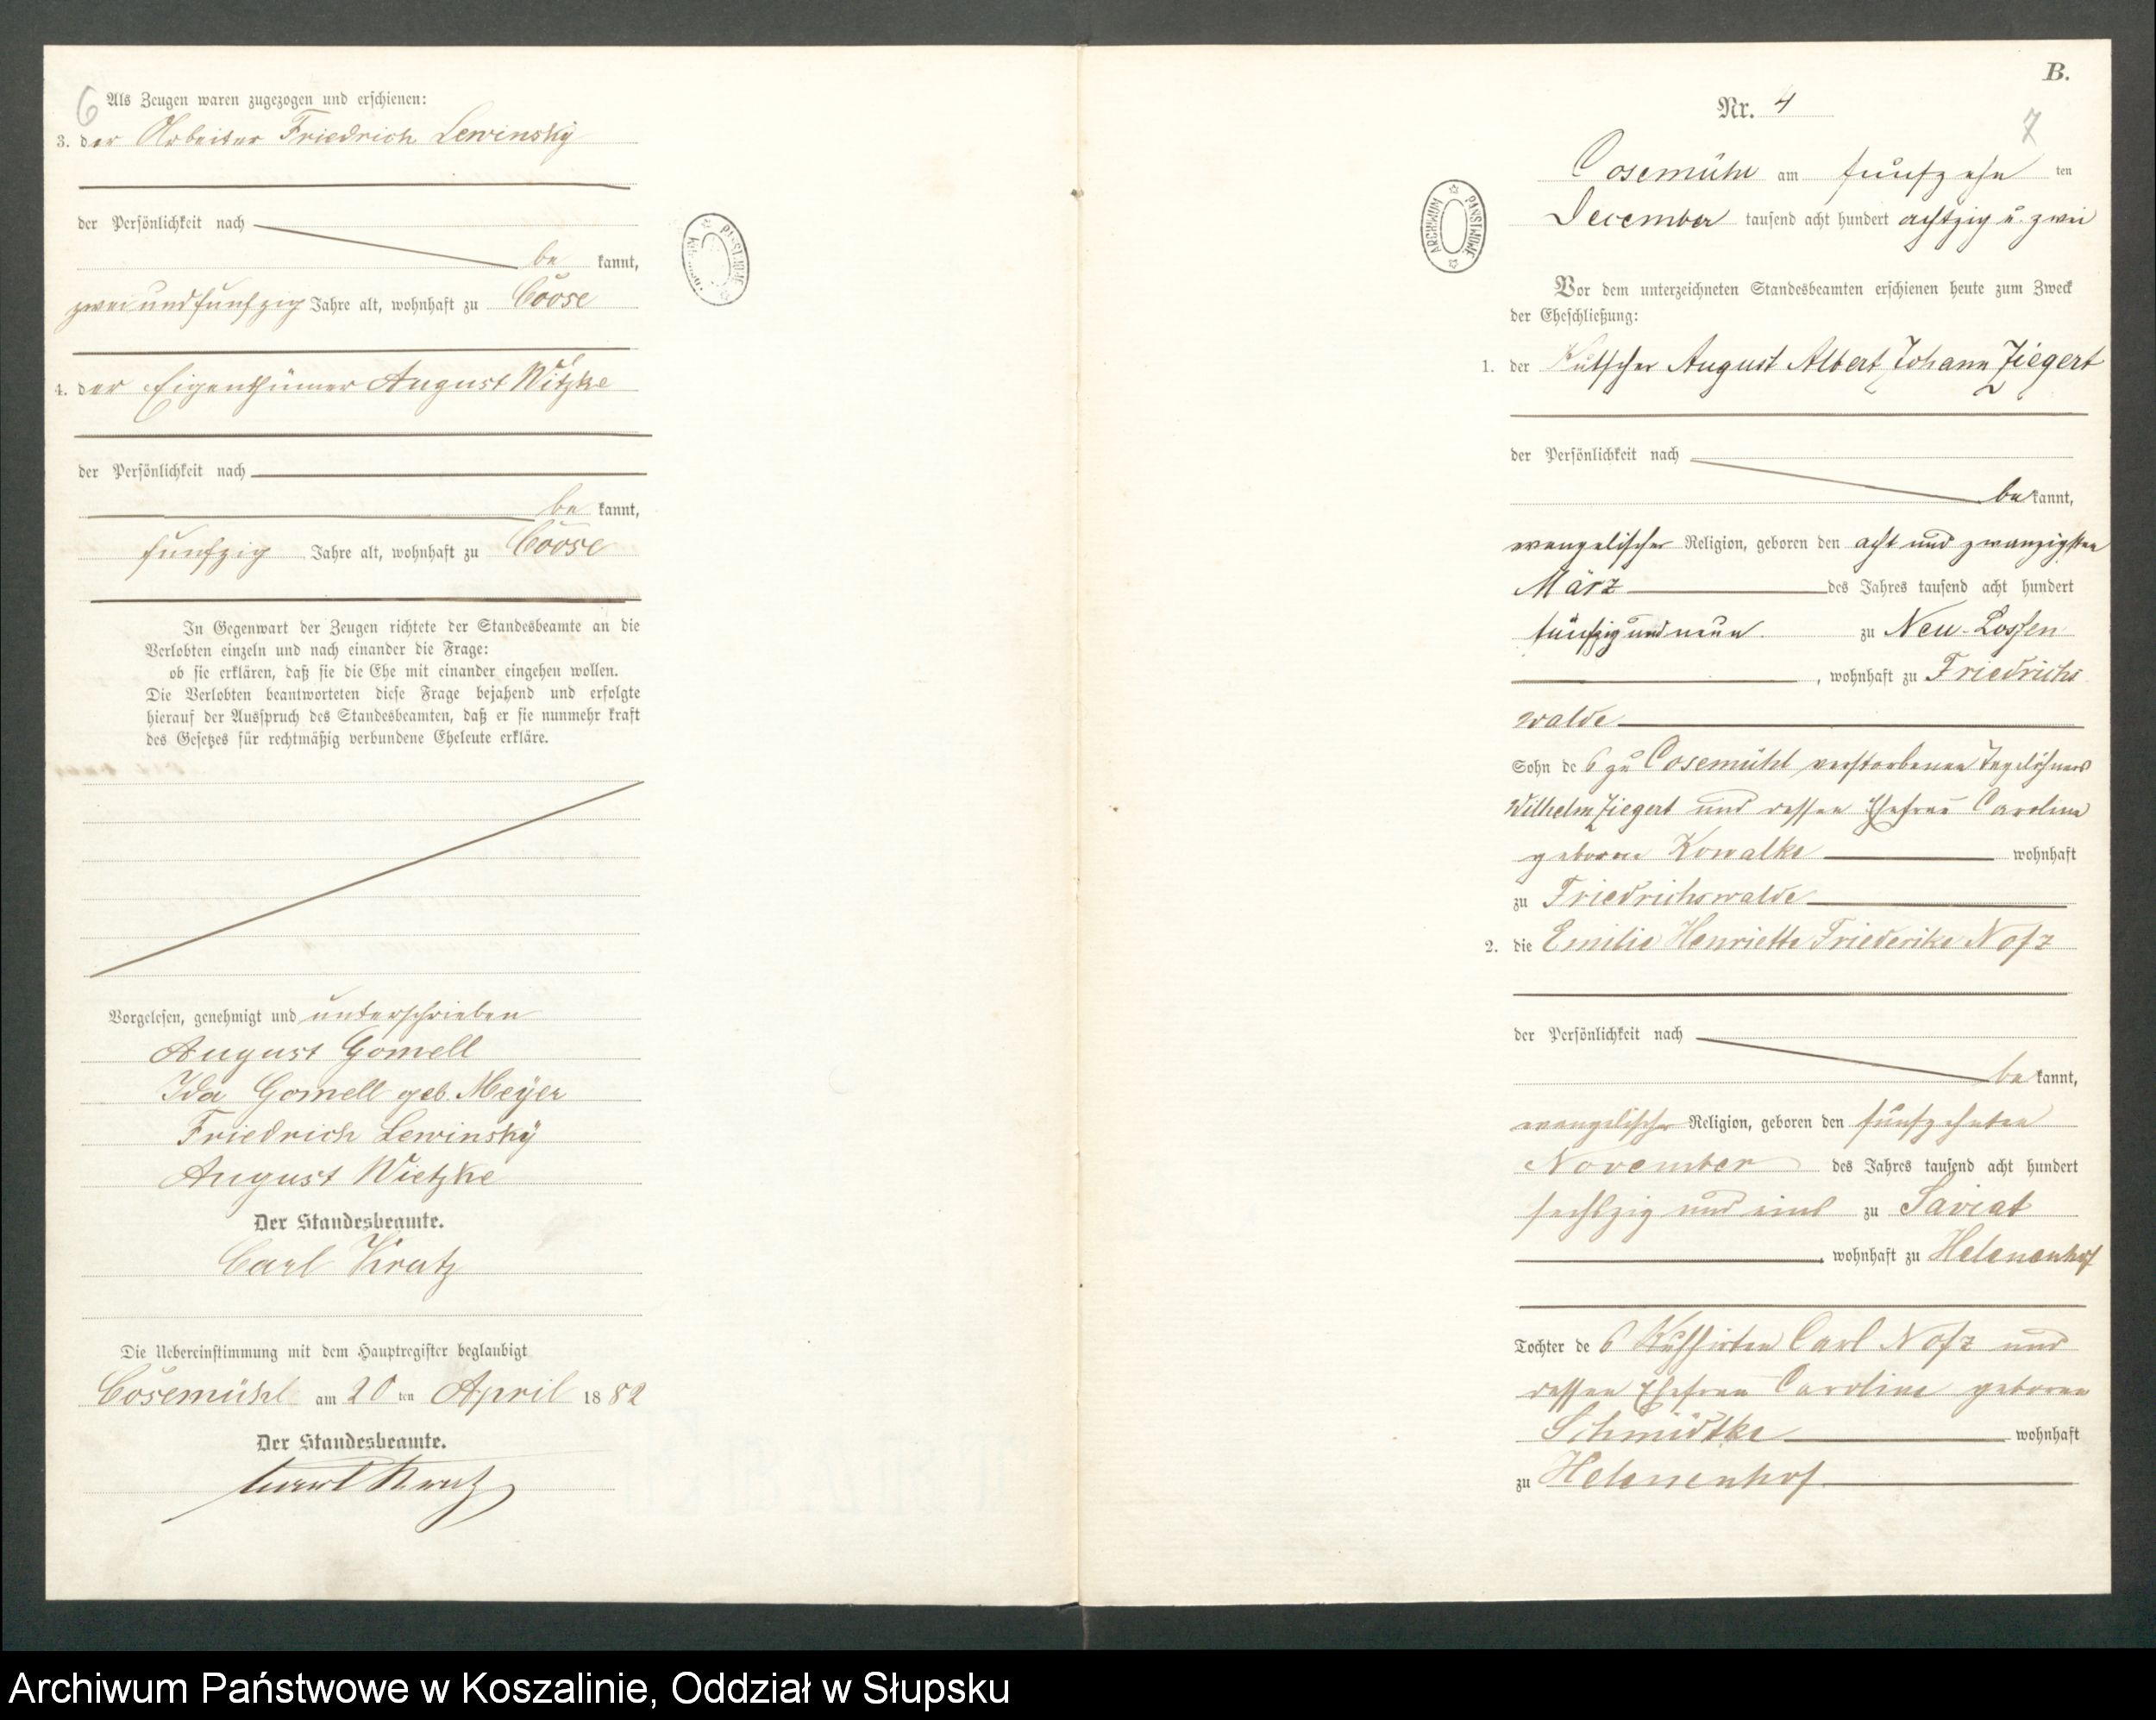 6
Als Zeugen waren zugezogen und erschienen:
3. der Arbeiter Friedrich Lewinsky
der Persönlichkeit nach
be kannt,
zwei und fünfzig Jahre alt, wohnhaft zu Coose
4. der Eigenthümer August Witzke
der Persönlichkeit nach
be kannt,
fünfzig Jahre alt, wohnhaft zu Coose
In Gegenwart der Zeugen richtete der Standesbeamte an die
Verlobten einzeln und nach einander die Frage:
ob sie erklären, daß sie die Ehe mit einander eingehen wollen.
Die Verlobten beantworteten diese Frage bejahend und erfolgte
hierauf der Ausspruch des Standesbeamten, daß er sie nunmehr kraft
des Gesetzes für rechtmäßig verbundene Eheleute erkläre.
Vorgelesen, genehmigt und unterschrieben
August Gomell
Ida Gomell geb. Meyer
Friedrich Lewinsky
August Wietzke
Der Standesbeamte.
Carl Kratz
Die Uebereinstimmung mit dem Hauptregister beglaubigt
Cosemühl am 20 ten April 18 82
Der Standesbeamte.
Carl Kratz
B.
Nr. 4
7
Cosemühl am fünfzehn ten
December tausend acht hundert achtzig u. zwei
ARCHIWUM PAŃSTWOWE
Vor dem unterzeichneten Standesbeamten erschienen heute zum Zweck
der Eheschließung:
1. der Kutscher August Albert Johann Ziegert
der Persönlichkeit nach
be kannt,
evangelischer Religion, geboren den acht und zwanzigsten
März des Jahres tausend acht hundert
fünfzig und neun zu Neu-Lossen
, wohnhaft zu Friedrichs
walde
Sohn de s zu Cosemühl verstorbenen Tagelöhners
Wilhelm Ziegert und dessen Ehefrau Caroline
geborene Kowalke wohnhaft
zu Friedrichswalde
2. die Emilie Henriette Friederike Nofz
der Persönlichkeit nach
be kannt,
evangelischer Religion, geboren den fünfzehnten
November des Jahres tausend acht hundert
sechszig und eins zu Saviat
, wohnhaft zu Helenenhof
Tochter de s Kuhhirten Carl Nofz und
dessen Ehefrau Caroline geborene
Schmidtke wohnhaft
zu Helenenhof
Archiwum Państwowe w Koszalinie, Oddział w Słupsku